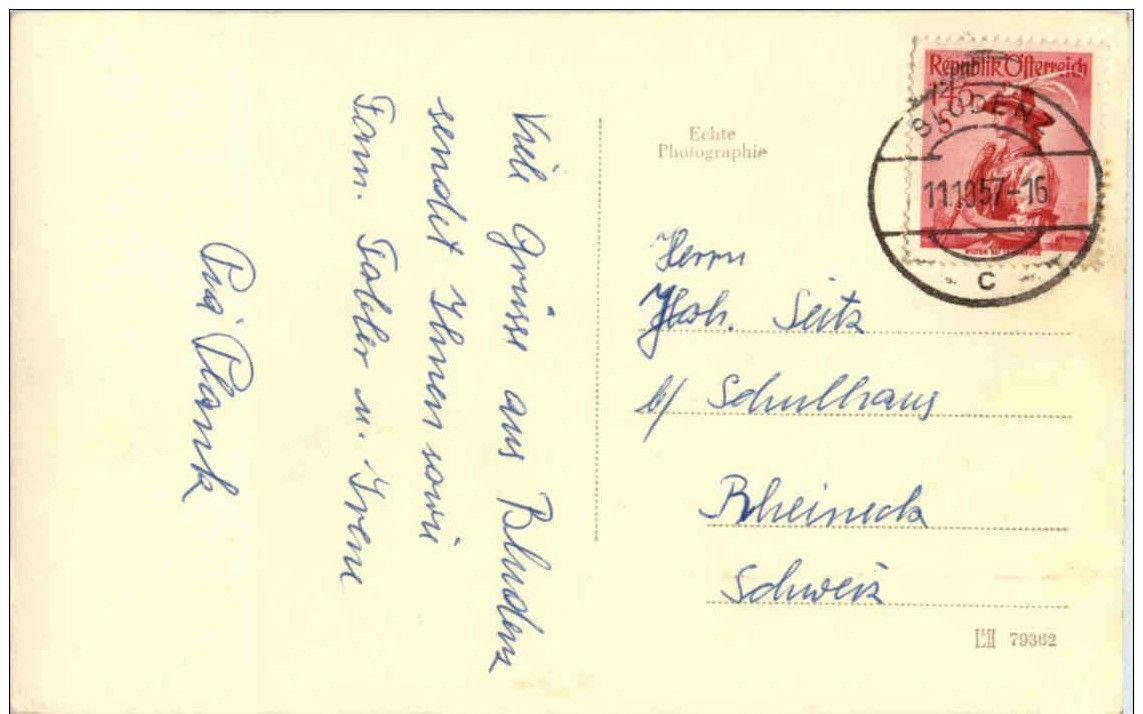 Viele Grüsse aus Bludenz
sendet Ihnen sowie
Fam. Tobler u. Irene
Pia Plank
Echte
Photographie
Republik Österreich
1.45
S
BLUDENZ
11.10.57-16
C
Herrn
Seitz
b/ Schulhaus
Rheineck
Schweiz
79362